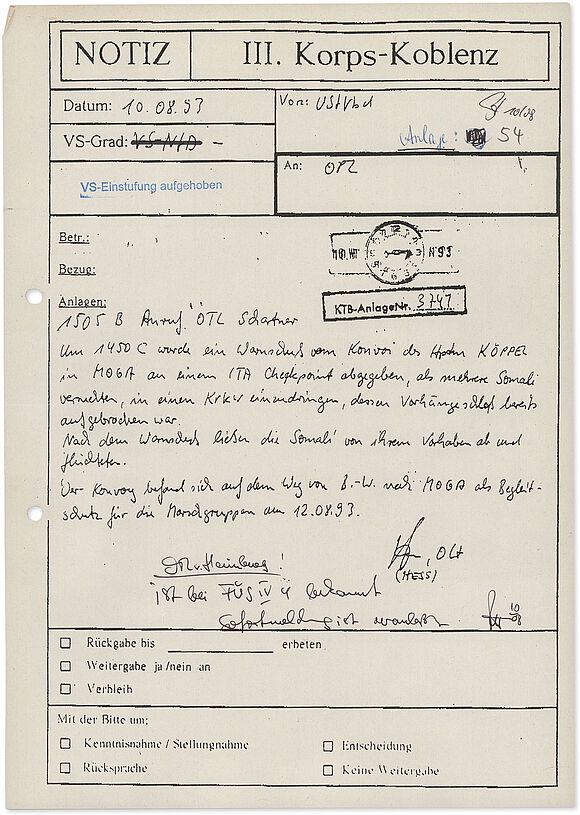 NOTIZ III. Korps-Koblenz
Datum: 10.08.93
Von: UStVbd
10/08
VS-Grad: VS-NfD -
Anlage: 54
VS-Einstufung aufgehoben
An: OPZ
Betr.:
Bezug:
Anlagen:
KTB-AnlageNr. 3747
1505 B Anruf OTL Schartner
Um 1450 C wurde ein Warnschuß vom Konvoi des Hptm KÖPPEL
in MOGA an einem ITA Checkpoint abgegeben, als mehrere Somali
versuchten, in einen KrKw einzudringen, dessen Vorhängeschloß bereits
aufgebrochen war.
Nach dem Warnschuß ließen die Somali von ihrem Vorhaben ab und
flüchteten.
Der Konvoy befand sich auf dem Weg von B.-W. nach MOGA als Begleit-
schutz für die Marschgruppen am 12.08.93.
, OLt
(HESS)
ist bei FÜS IV 4 bekannt
Sofortmeldung ist veranlaßt
10/08
Rückgabe bis erbeten
Weitergabe ja/nein an
Verbleib
Mit der Bitte um:
Kenntnisnahme / Stellungnahme
Entscheidung
Rücksprache
Keine Weitergabe